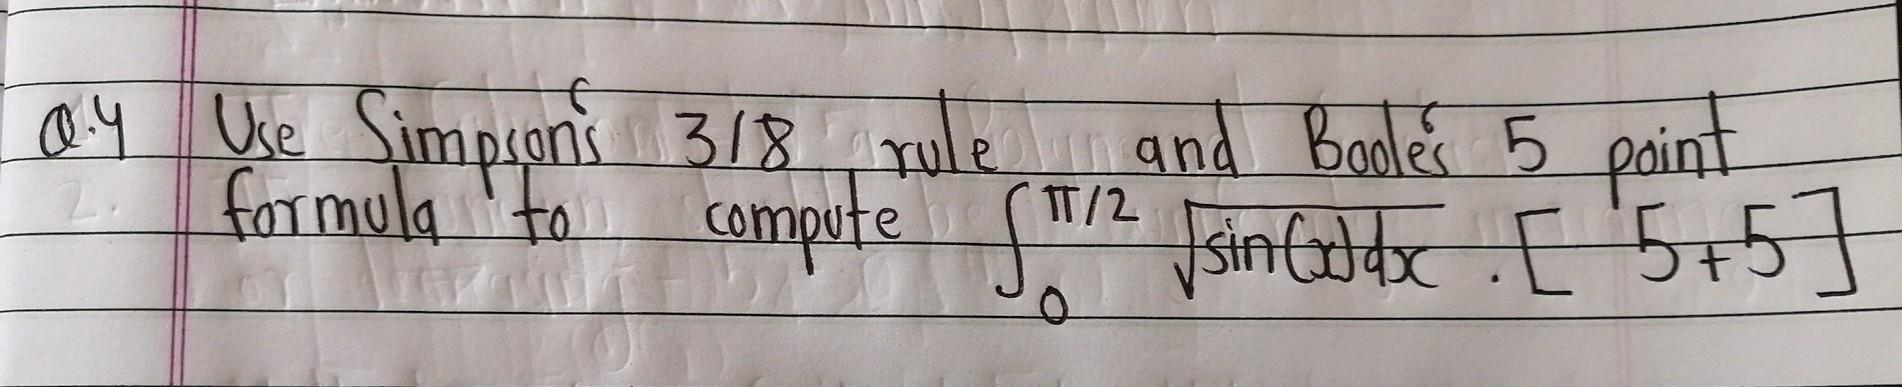 Q.4 Use Simpson's 3/8 rule and Boole's 5 point
formula to compute ∫₀^π/2 √sin(x)dx . [ 5+5 ]